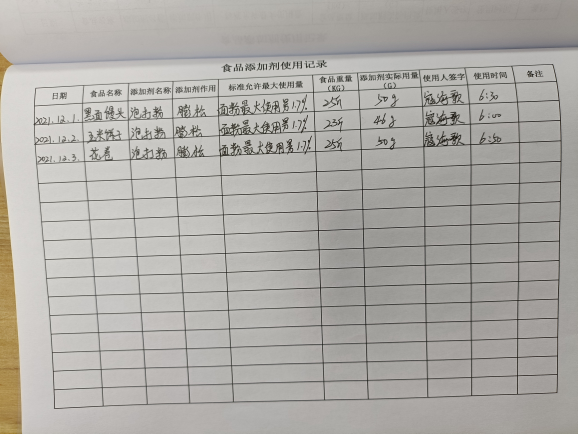 食品添加剂使用记录
日期 食品名称 添加剂名称 添加剂作用 标准允许最大使用量 食品重量(KG) 添加剂实际用量(G) 使用人签字 使用时间 备注
2021.12.1. 黑面馒头 泡打粉 膨松 面粉最大使用量1.7% 25斤 50g 海歌 6:30
2021.12.2. 玉米饼子 泡打粉 膨松 面粉最大使用量1.7% 23斤 46g 海歌 6:00
2021.12.3. 花卷 泡打粉 膨松 面粉最大使用量1.7% 25斤 50g 海歌 6:50